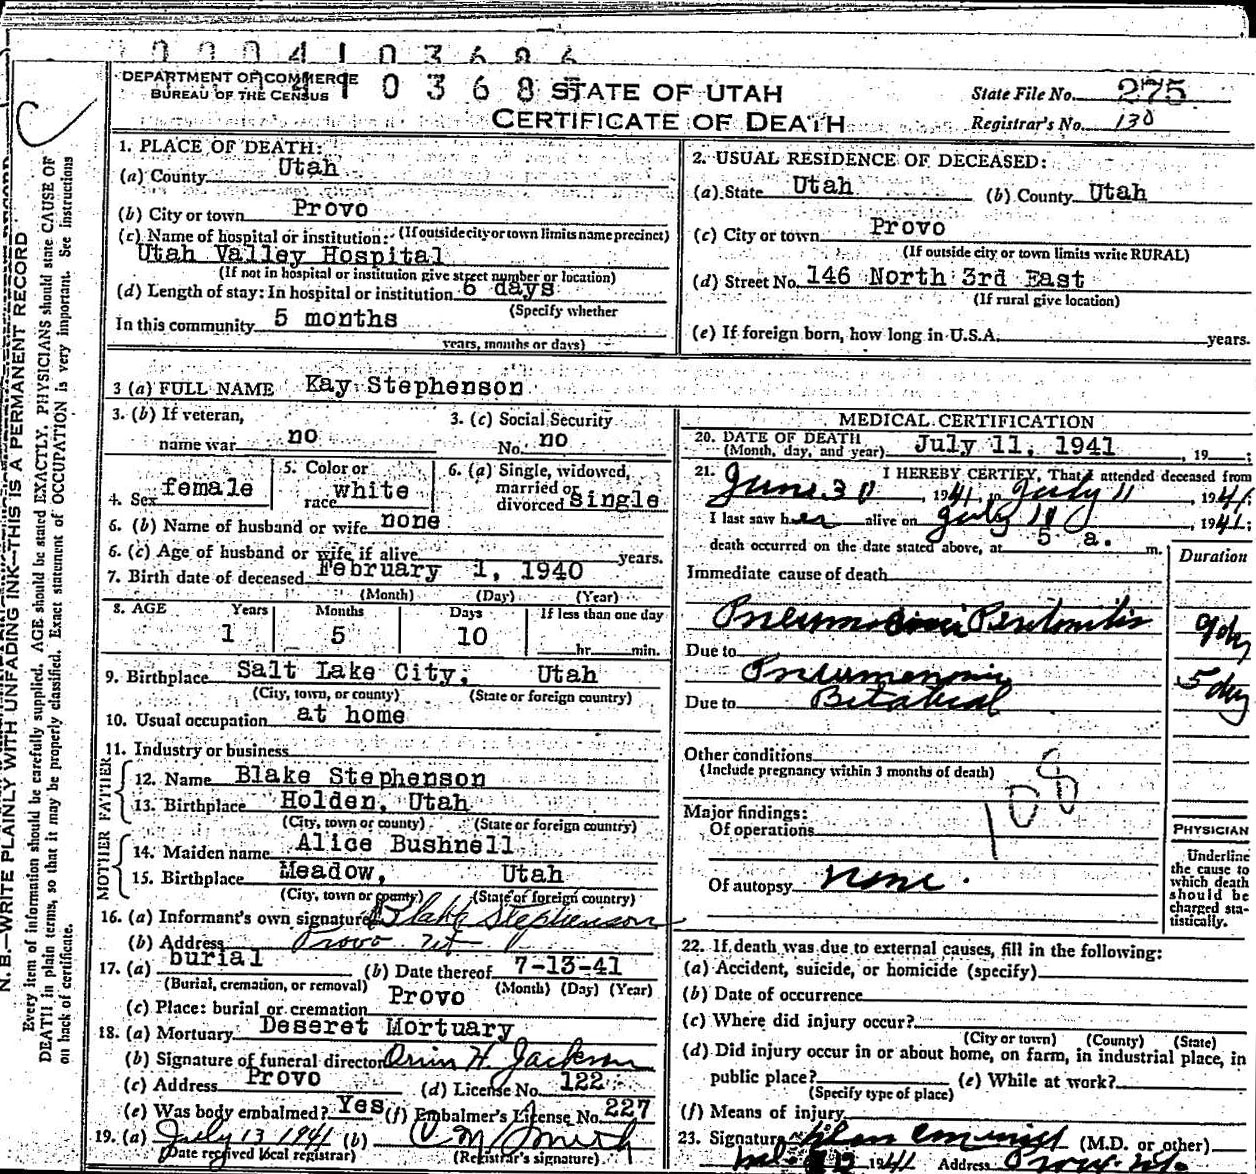 0004103686
DEPARTMENT OF COMMERCE
BUREAU OF THE CENSUS
STATE OF UTAH
CERTIFICATE OF DEATH
State File No. 275
Registrar's No. 130
1. PLACE OF DEATH:
(a) County Utah
(b) City or town Provo
(If outside city or town limits name precinct)
(c) Name of hospital or institution:
Utah Valley Hospital
(If not in hospital or institution give street number or location)
(d) Length of stay: In hospital or institution 6 days
(Specify whether
In this community 5 months
years, months or days)
2. USUAL RESIDENCE OF DECEASED:
(a) State Utah (b) County Utah
(c) City or town Provo
(If outside city or town limits write RURAL)
(d) Street No. 146 North 3rd East
(If rural give location)
(e) If foreign born, how long in U.S.A. years.
3 (a) FULL NAME Kay Stephenson
3. (b) If veteran, name war no
3. (c) Social Security No. no
4. Sex female
5. Color or race white
6. (a) Single, widowed, married or divorced single
6. (b) Name of husband or wife none
6. (c) Age of husband or wife if alive years.
7. Birth date of deceased February 1, 1940
(Month) (Day) (Year)
8. AGE Years Months Days If less than one day
1 5 10 hr. min.
9. Birthplace Salt Lake City, Utah
(City, town, or county) (State or foreign country)
10. Usual occupation at home
11. Industry or business
FATHER
12. Name Blake Stephenson
13. Birthplace Holden, Utah
(City, town or county) (State or foreign country)
MOTHER
14. Maiden name Alice Bushnell
15. Birthplace Meadow, Utah
(City, town or county) (State or foreign country)
16. (a) Informant's own signature Blake Stephenson
(b) Address Provo Ut
17. (a) burial (b) Date thereof 7-13-41
(Burial, cremation, or removal) (Month) (Day) (Year)
(c) Place: burial or cremation Provo
18. (a) Mortuary Deseret Mortuary
(b) Signature of funeral director Orin H. Jackson
(c) Address Provo (d) License No. 122
(e) Was body embalmed? Yes (f) Embalmer's License No. 227
19. (a) July 13 1941 (b) Smith
(Date received local registrar) (Registrar's signature)
MEDICAL CERTIFICATION
20. DATE OF DEATH
(Month, day, and year) July 11, 1941, 19 ;
21. I HEREBY CERTIFY, That I attended deceased from
June 30, 1941, to July 11, 1941
I last saw her alive on July 10, 1941;
death occurred on the date stated above, at 5 a. m.
Duration
Immediate cause of death
Peritonitis
Due to
Due to
5 day
Other conditions
(Include pregnancy within 3 months of death)
108
Major findings:
Of operations
Of autopsy none.
PHYSICIAN
Underline
the cause to
which death
should be
charged sta-
tistically.
22. If death was due to external causes, fill in the following:
(a) Accident, suicide, or homicide (specify)
(b) Date of occurrence
(c) Where did injury occur?
(City or town) (County) (State)
(d) Did injury occur in or about home, on farm, in industrial place, in
public place? (e) While at work?
(Specify type of place)
(f) Means of injury
23. Signature (M.D. or other)
1941 Address
N. B.—WRITE PLAINLY WITH UNFADING INK—THIS IS A PERMANENT RECORD
Every item of information should be carefully supplied. AGE should be stated EXACTLY. PHYSICIANS should state CAUSE OF
DEATH in plain terms, so that it may be properly classified. Exact statement of OCCUPATION is very important. See instructions
on back of certificate.